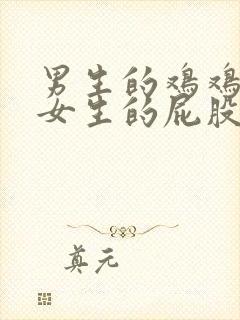 男生的鸡鸡
女生的屁股
真元